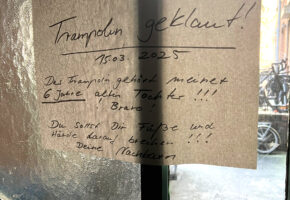 Trampolin geklaut!
15.03.2025
Das Trampolin gehört meiner
6 Jahre alten Tochter!!!
Bravo!
Du sollst Dir Füße und
Hände darauf brechen!!!
Deine Nachbarn